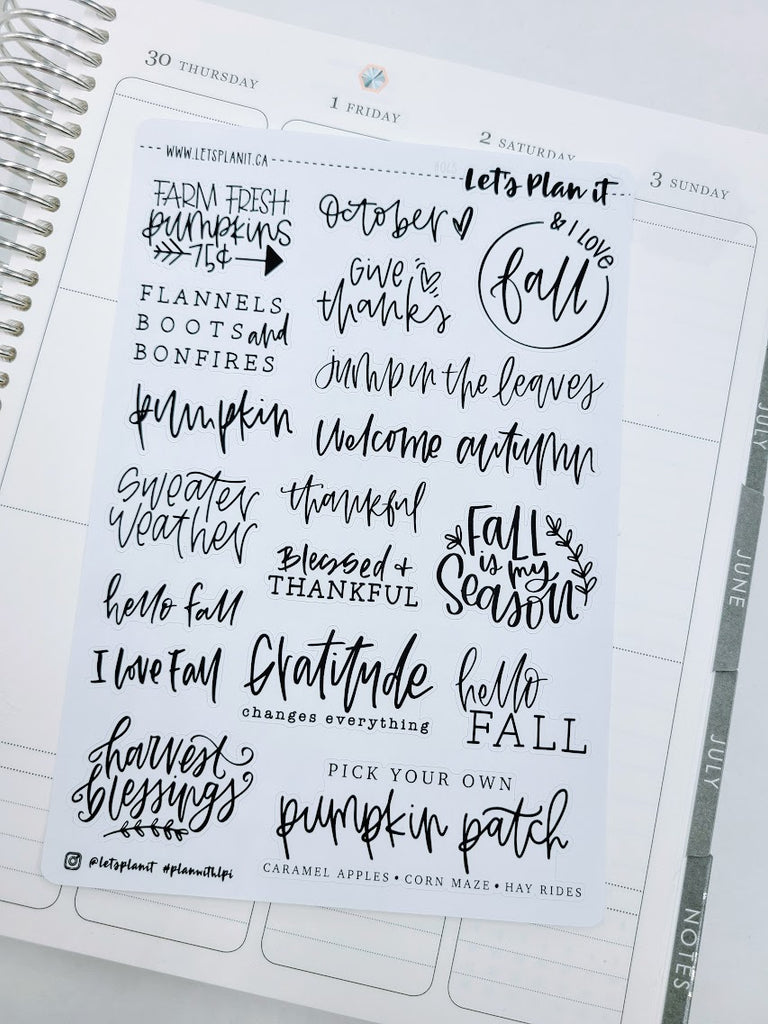 30 THURSDAY
1 FRIDAY
2 SATURDAY
3 SUNDAY
WWW.LETSPLANIT.CA
Let's Plan it
FARM FRESH
pumpkins
75¢
October
& I LOVE
fall
Give
thanks
FLANNELS
BOOTS and
BONFIRES
jump in the leaves
pumpkin
Welcome autumn
Sweater
weather
thankful
FALL
is my
Season
Blessed +
THANKFUL
hello fall
I love Fall
Gratitude
changes everything
hello
FALL
harvest
blessings
PICK YOUR OWN
pumpkin patch
CARAMEL APPLES • CORN MAZE • HAY RIDES
@letsplanit #planwithlpi
JULY
JUNE
JULY
NOTES